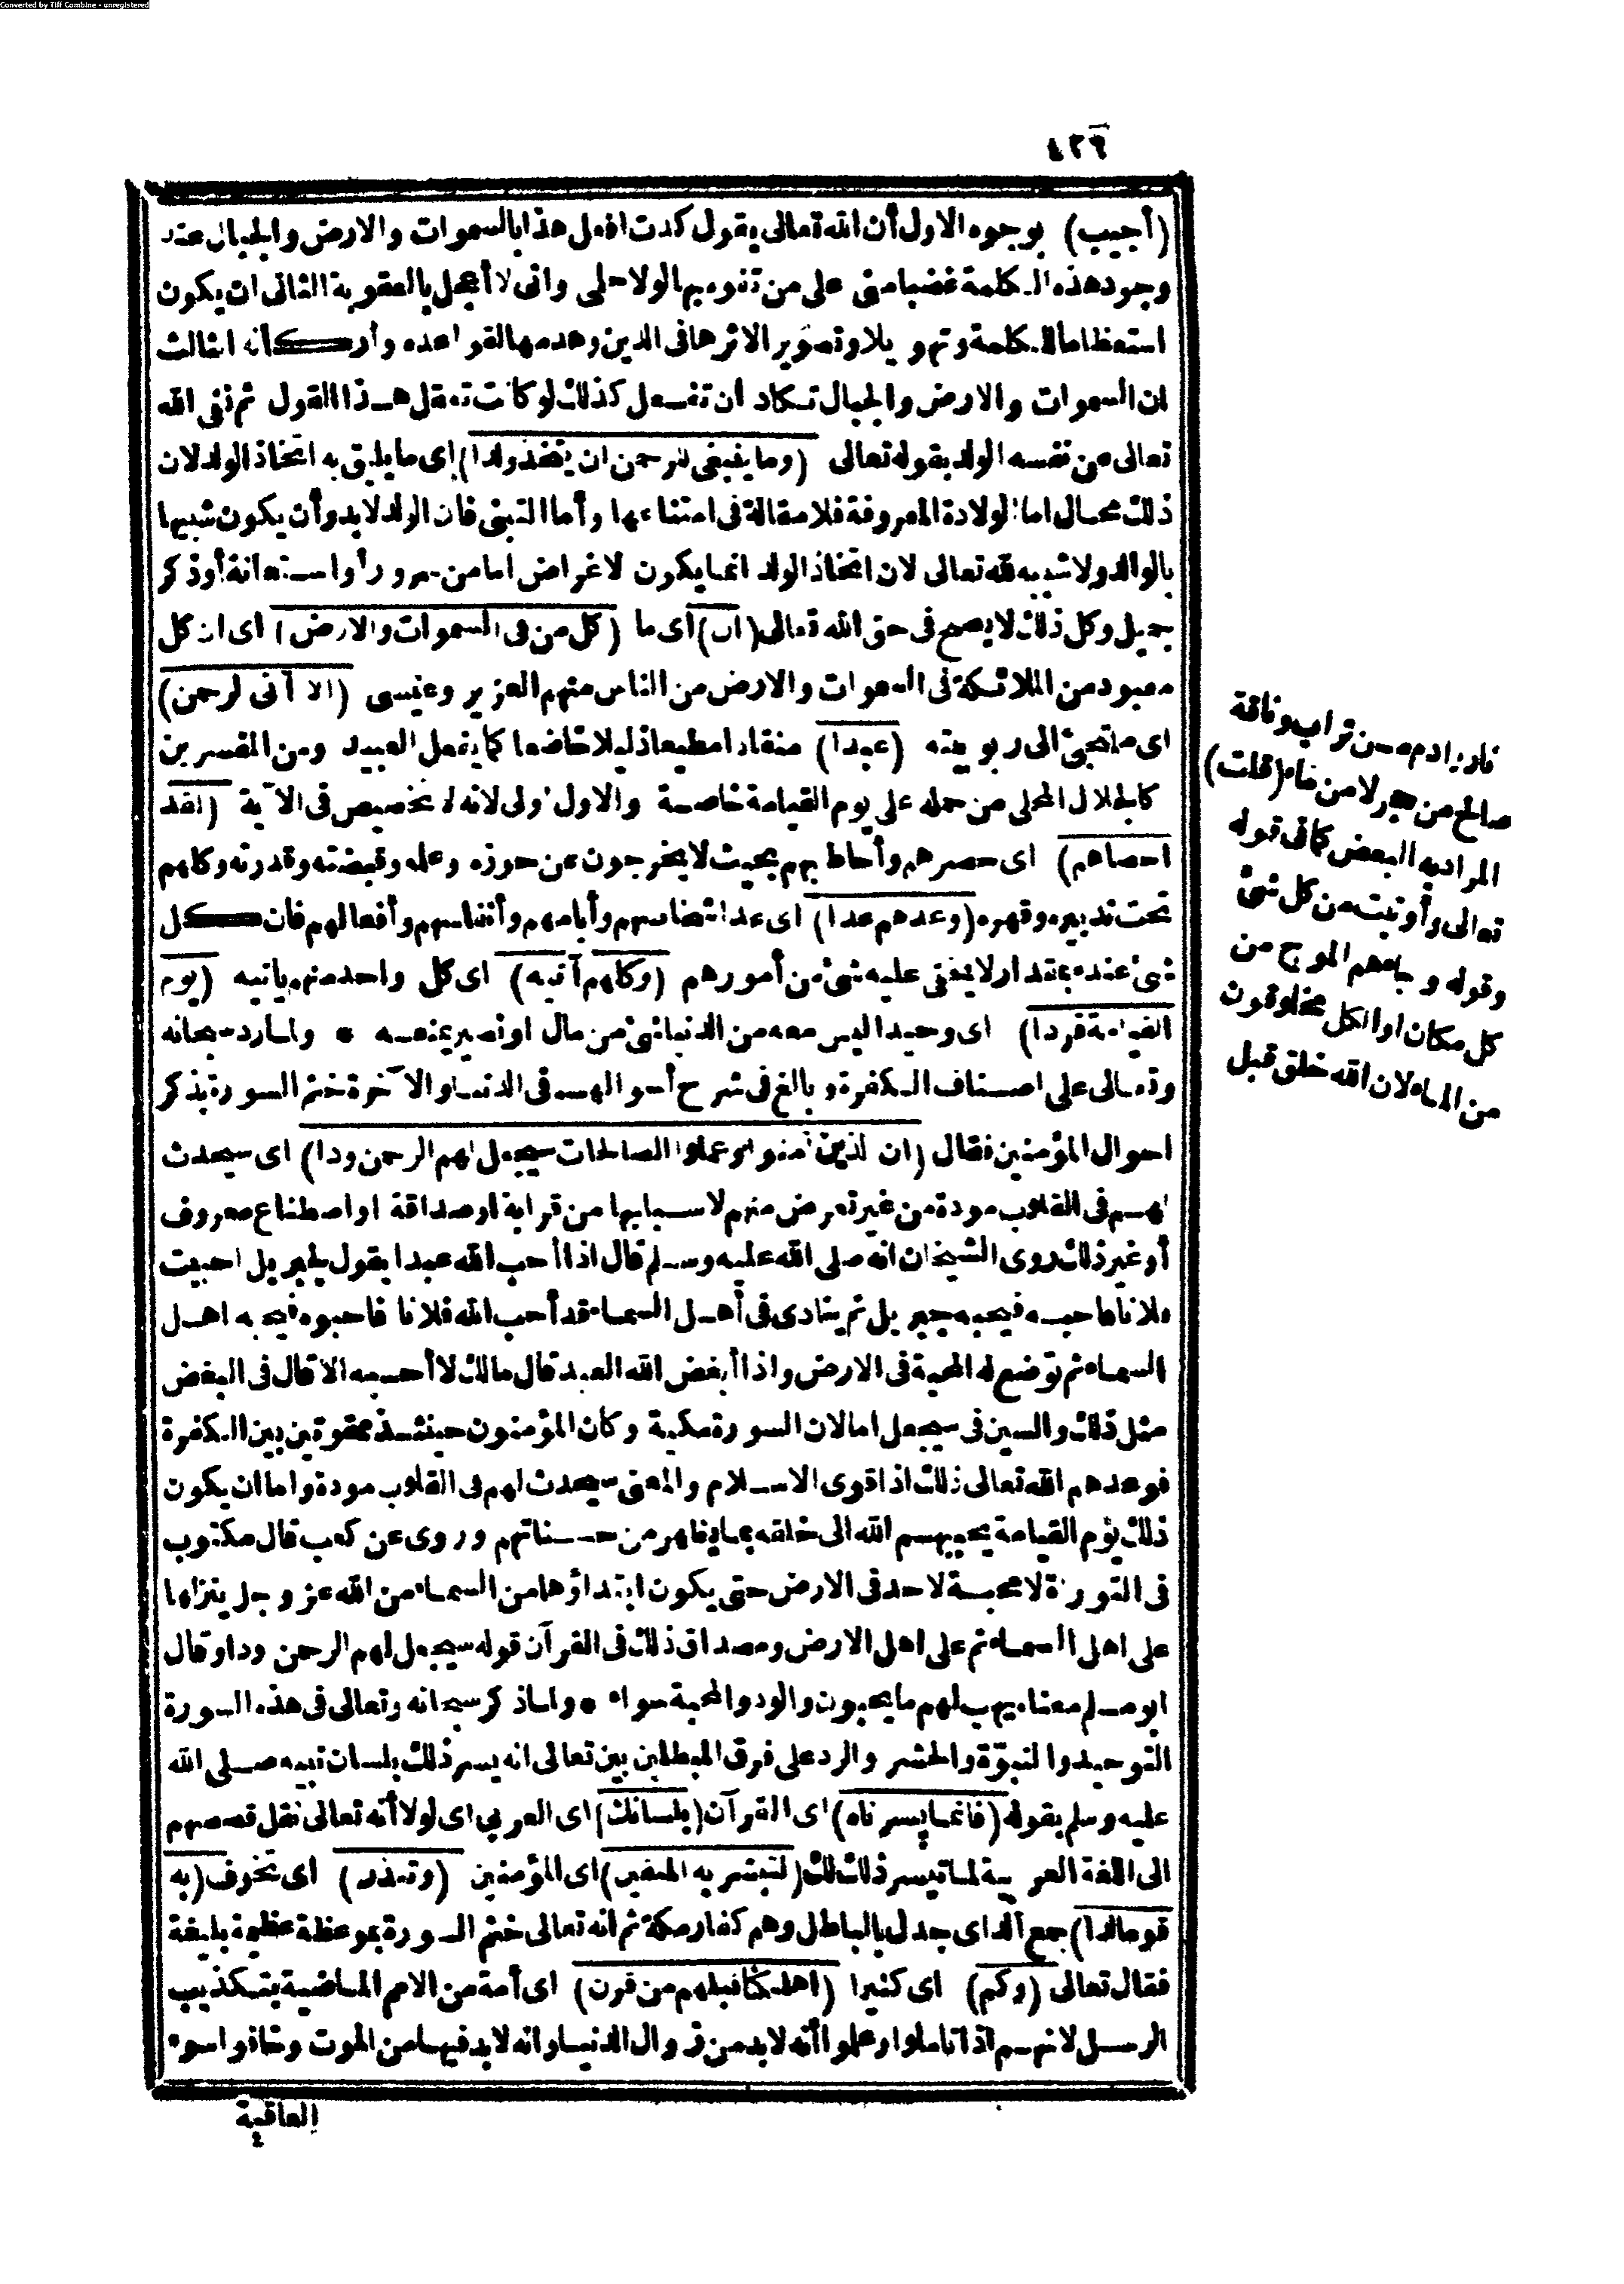 Converted by Tiff Combine - unregistered
٤٣٩
(أجيب) بوجوه الاول أن الله تعالى يقول كدت افعل هذا بالسموات والارض والجبال عند
وجود هذه الكلمة غضبا منى على من تفوه بها لولا حلمى وانى لا أعجل بالعقوبة الثانى ان يكون
استعظاما للكلمة وتهويلا وتصويرا لاثرها فى الدين وهدمها لقواعده وأركانه الثالث
ان السموات والارض والجبال تكاد ان تفعل كذلك لو كانت تعقل هذا القول ثم نفى الله
تعالى عن نفسه الولد بقوله تعالى (وما ينبغى للرحمن ان يتخذ ولدا) اى ما يليق به اتخاذ الولد لان
ذلك محال اما الولادة المعروفة فلا مقالة فى امتناعها وأما التبنى فان الولد لا بد وأن يكون شبيها
بالوالد ولا شبيه لله تعالى لان اتخاذ الولد انما يكون لاغراض اما من سرور أو استعانة أو ذكر
جميل وكل ذلك لا يصح فى حق الله تعالى (ان) اى ما (كل من فى السموات والارض) اى ان كل
معبود من الملائكة فى السموات والارض من الناس منهم العزير وعيسى (الا آتى الرحمن)
اى ملتجئ الى ربوبيته (عبدا) منقادا مطيعا ذليلا خاضعا كما يفعل العبيد ومن المفسرين
كالجلال المحلى من حمله على يوم القيامة خاصة والاول أولى لانه لا تخصيص فى الآية (لقد
احصاهم) اى حصرهم وأحاط بهم بحيث لا يخرجون عن حوزه وعلمه وقبضته وقدرته وكلهم
تحت تدبيره وقهره (وعدهم عدا) اى عد اشخاصهم وأيامهم وأنفاسهم وأفعالهم فان كل
شئ عنده بمقدار لا يخفى عليه شئ من أمورهم (وكلهم آتيه) اى كل واحد منهم يأتيه (يوم
القيامة فردا) اى وحيدا ليس معه من الدنيا شئ من مال او نصير يمنعه * ولما رد سبحانه
وتعالى على اصناف الكفرة وبالغ فى شرح أحوالهم فى الدنيا والآخرة ختم السورة بذكر
احوال المؤمنين فقال (ان الذين آمنوا وعملوا الصالحات سيجعل لهم الرحمن ودا) اى سيحدث
لهم فى القلوب مودة من غير تعرض منهم لاسبابها من قرابة او صداقة او اصطناع معروف
أو غير ذلك روى الشيخان انه صلى الله عليه وسلم قال اذا أحب الله عبدا يقول لجبريل احببت
فلانا فاحبه فيحبه جبريل ثم ينادى فى أهل السماء قد أحب الله فلانا فاحبوه فيحبه اهل
السماء ثم توضع له المحبة فى الارض واذا أبغض الله العبد قال مالك لا أحسبه الا قال فى البغض
مثل ذلك والسين فى سيجعل اما لان السورة مكية وكان المؤمنون حينئذ ممقوتين بين الكفرة
فوعدهم الله تعالى ذلك اذا قوى الاسلام والمعنى سيحدث لهم فى القلوب مودة واما ان يكون
ذلك يوم القيامة يحببهم الله الى خلقه بما يظهر من حسناتهم وروى عن كعب قال مكتوب
فى التوراة لا محبة لاحد فى الارض حتى يكون ابتداؤها من السماء من الله عز وجل ينزلها
على اهل السماء ثم على اهل الارض ومصداق ذلك فى القرآن قوله سيجعل لهم الرحمن ودا وقال
ابو مسلم معناه يهب لهم ما يحبون والود والمحبة سواء * ولما ذكر سبحانه وتعالى فى هذه السورة
التوحيد والنبوّة والحشر والرد على فرق المبطلين بين تعالى انه يسر ذلك بلسان نبيه صلى الله
عليه وسلم بقوله (فانما يسرناه) اى القرآن (بلسانك) اى العربي اى لولا أنه تعالى نقل قصصهم
الى اللغة العربية لما تيسر ذلك لك (لتبشر به المتقين) اى المؤمنين (وتنذر) اى تخوف (به
قوما لدا) جمع ألد اى جدل بالباطل وهم كفار مكة ثم انه تعالى ختم السورة بموعظة عظيمة بليغة
فقال تعالى (وكم) اى كثيرا (اهلكنا قبلهم من قرن) اى أمة من الامم الماضية بتكذيب
الرسل لانهم اذا تاملوا وعلموا أنه لا بد من زوال الدنيا وانه لا بد فيها من الموت وخافوا سوء
العاقبة
نار وادم من تراب وناقة
صالح من حجر لا من ماء (قلت)
المراد به البعض كما فى قوله
تعالى وأوتيت من كل شئ
وقوله وجاءهم الموج من
كل مكان او الكل مخلوقون
من الماء لان الله خلق قبل